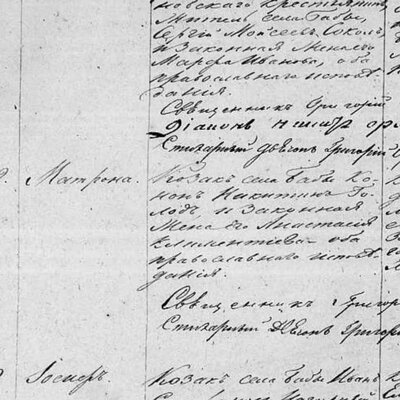 новскаго крестьянинъ,
житель села Бабы,
Сергій Моѵсеевъ Соколъ,
и законная жена его
Марфа Иванова, оба
православнаго испове
данія.
Священникъ Григорій
Стихарный Дьячекъ Григорій
Матрона.
Козакъ села Бабы Ко
нонъ Никитинъ Го
лодъ, и законная
жена его Анастасія
Климентіева оба
православнаго испове
данія.
Священникъ Григор
Стихарный Дьячекъ Григорі
Іосифъ.
Козакъ села Бабы Иванъ